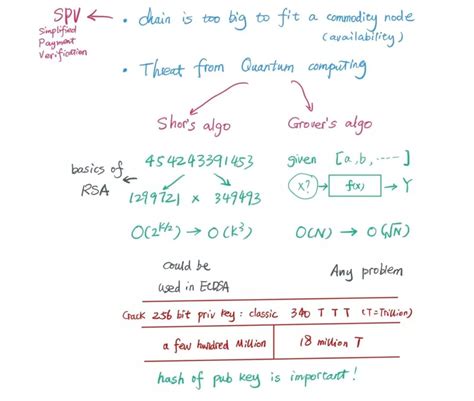 SPV ← • chain is too big to fit a commodity node
Simplified
Payment
Verification
(availability)
• Threat from Quantum computing
Shor's algo
Grover's algo
basics of
RSA
454243391453
1299721 x 349493
O(2^{k/2}) → O(k³)
could be
used in EcDSA
given [a, b, ----]
x? → f(x) → Y
O(N) → O(√N)
Any problem
Crack 256 bit priv key : classic 340 T T T (T=Trillion)
a few hundred Million
18 million T
hash of pub key is important!